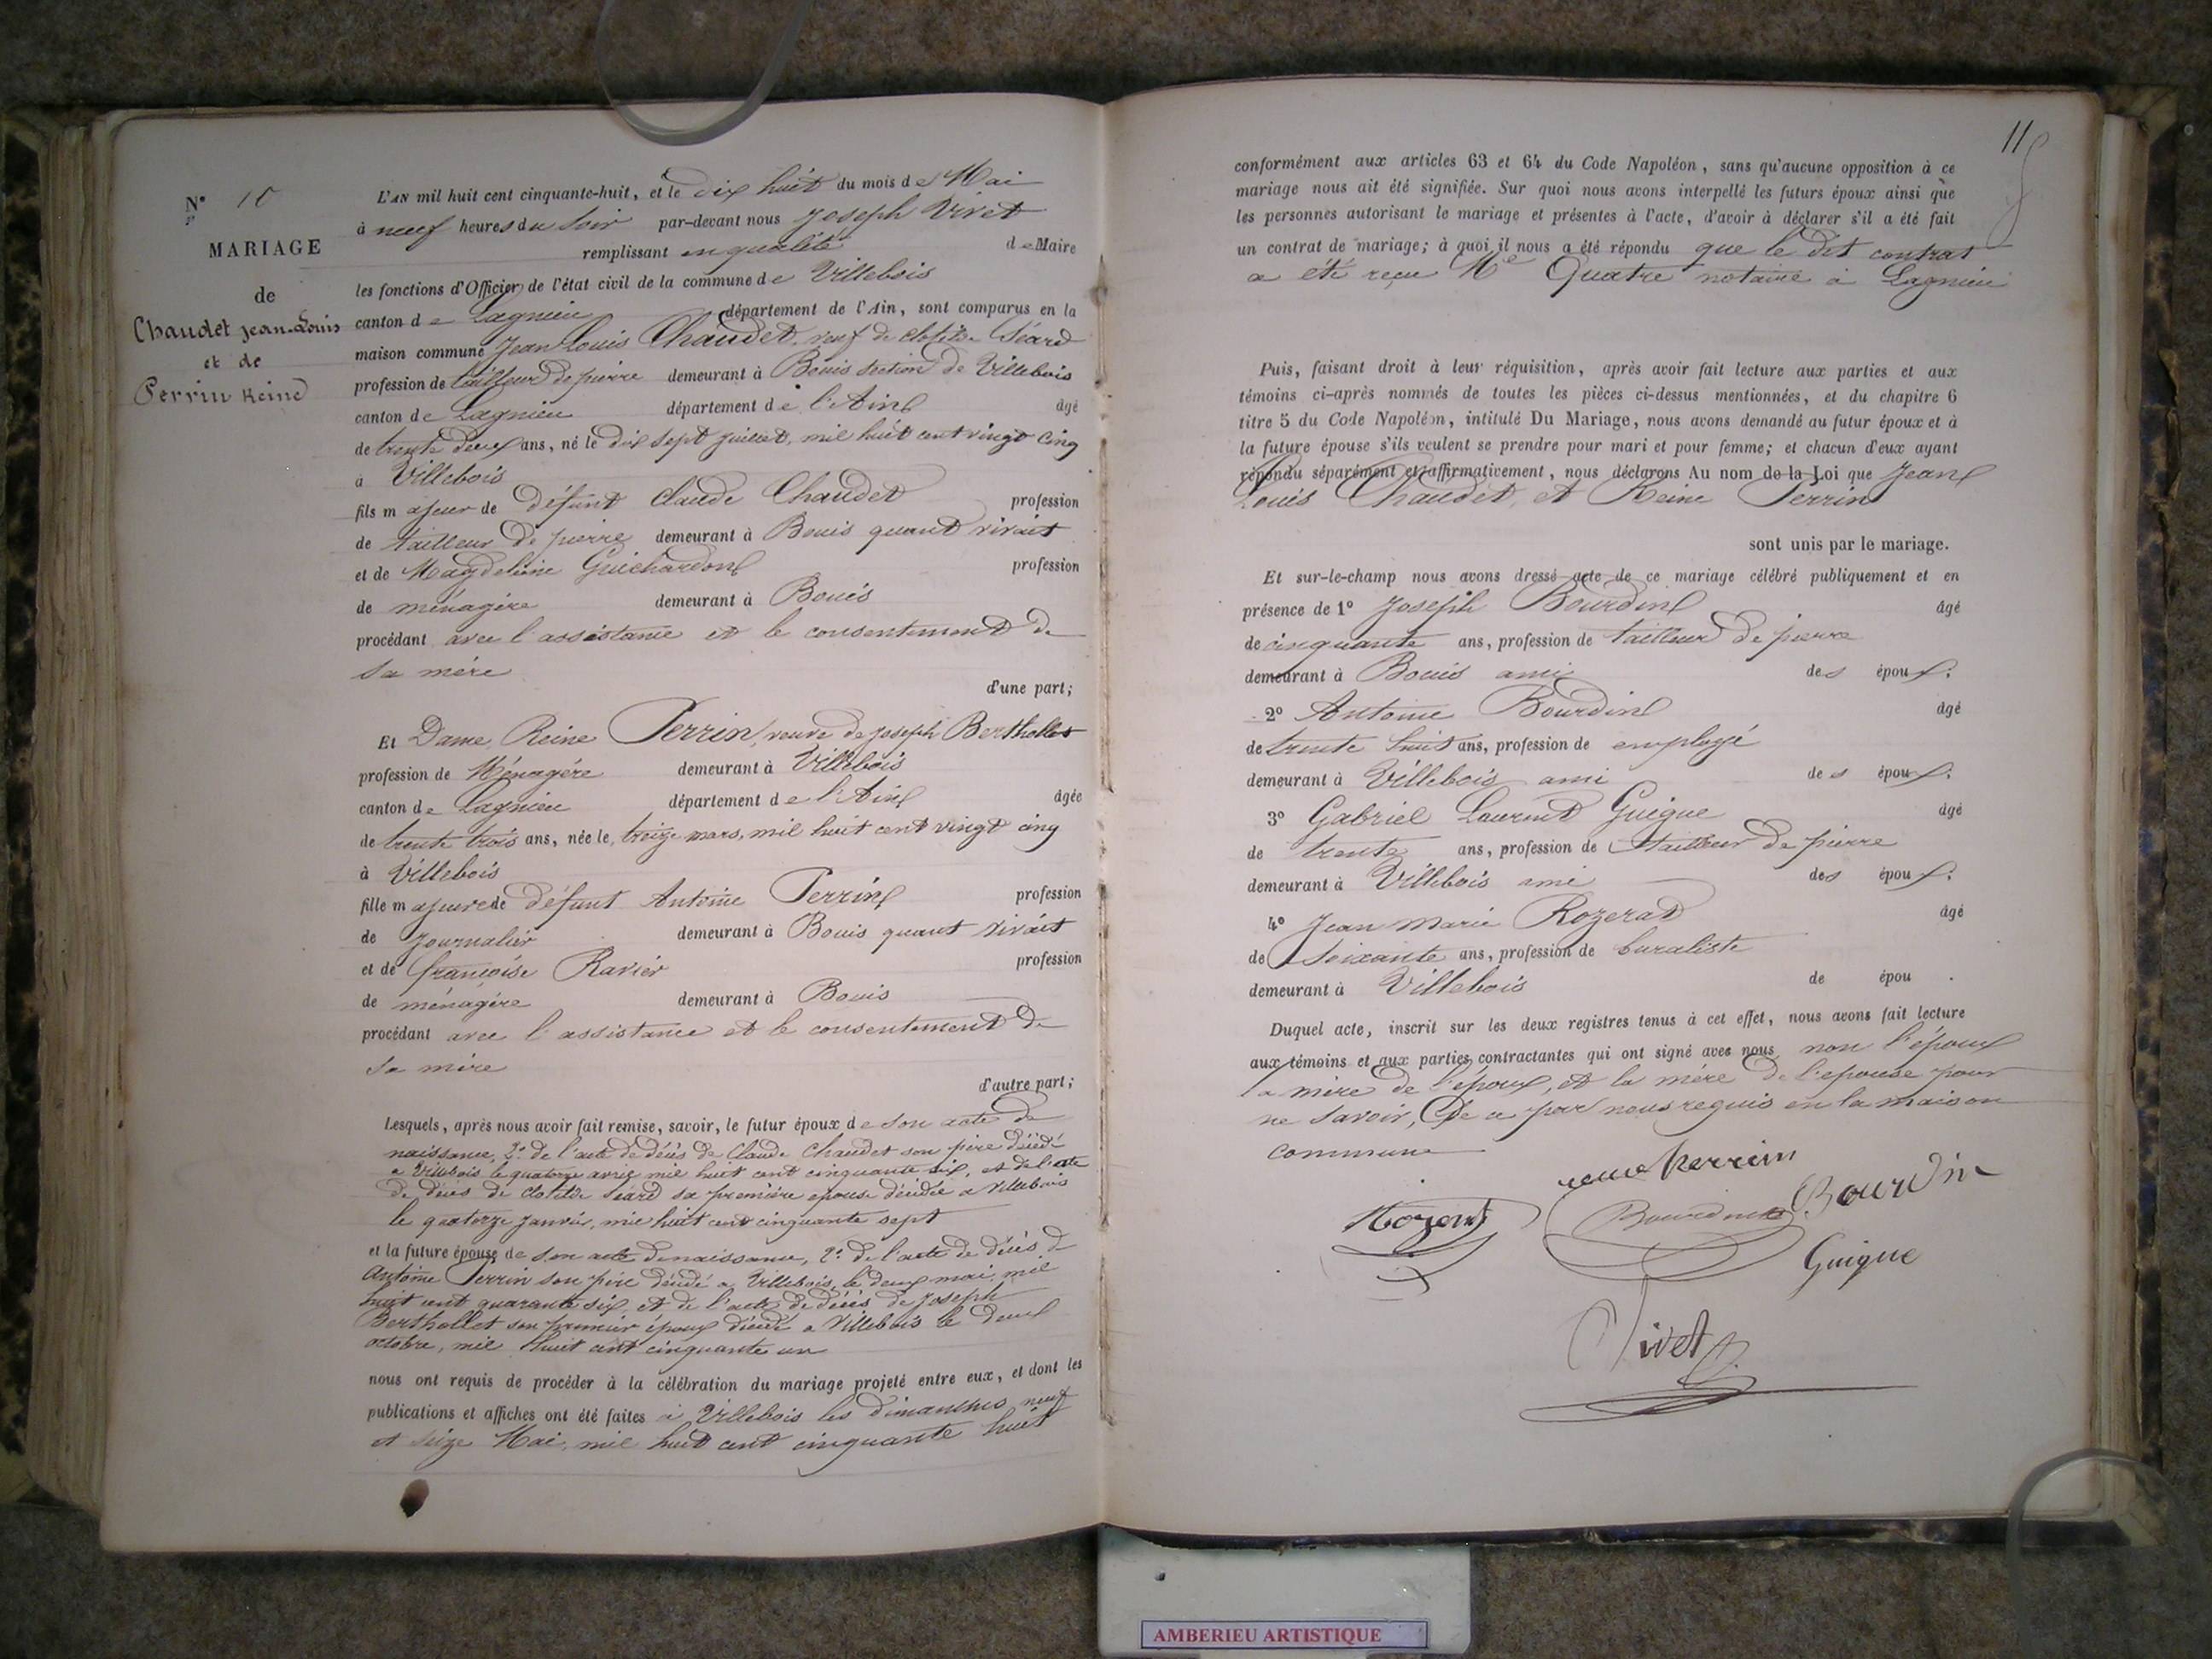 N° 10
MARIAGE
de
Chaudet Jean-Louis
et de
Perrin Reine
L'AN mil huit cent cinquante-huit, et le dix huit du mois de Mai
à neuf heures du soir par-devant nous Joseph Vivet
remplissant en qualité de Maire
les fonctions d'Officier de l'état civil de la commune de Villebois
canton de Lagnieu département de l'Ain, sont comparus en la
maison commune Jean Louis Chaudet, veuf de Clotilde Séard
profession de tailleur de pierre demeurant à Bouis section de Villebois
canton de Lagnieu département de l'Ain âgé
de trente deux ans, né le dix sept juillet, mil huit cent vingt cinq
à Villebois
fils majeur de défunt Claude Chaudet profession
de tailleur de pierre demeurant à Bouis quant vivait
et de Magdeleine Guichardon profession
de ménagère demeurant à Bouis
procédant avec l'assistance et le consentement de
sa mère
d'une part;
Et Dame Reine Perrin, veuve de Joseph Berthollet
profession de Ménagère demeurant à Villebois
canton de Lagnieu département de l'Ain âgée
de trente trois ans, née le, treize mars, mil huit cent vingt cinq
à Villebois
fille majeure de défunt Antoine Perrin profession
de Journalier demeurant à Bouis quant vivait
et de françoise Ravier profession
de ménagère demeurant à Bouis
procédant avec l'assistance et le consentement de
sa mère
d'autre part;
Lesquels, après nous avoir fait remise, savoir, le futur époux de son acte de
naissance, 2° de l'acte de décès de Claude Chaudet son père décédé
a Villebois le quatorze avril mil huit cent cinquante six, et de l'acte
de décès de Clotilde Séard sa première épouse décédée a Villebois
le quatorze janvier, mil huit cent cinquante sept
et la future épouse de son acte de naissance, 2° de l'acte de décès de
Antoine Perrin son père décédé a Villebois, le deux mai, mil
huit cent quarante six, et de l'acte de décès de Joseph
Berthollet son premier époux décédé a Villebois le deux
octobre, mil huit cent cinquante un
nous ont requis de procéder à la célébration du mariage projeté entre eux, et dont les
publications et affiches ont été faites à Villebois les dimanches neuf
et seize Mai, mil huit cent cinquante huit
11
conformément aux articles 63 et 64 du Code Napoléon, sans qu'aucune opposition à ce
mariage nous ait été signifiée. Sur quoi nous avons interpellé les futurs époux ainsi que
les personnes autorisant le mariage et présentes à l'acte, d'avoir à déclarer s'il a été fait
un contrat de mariage; à quoi il nous a été répondu que le dit contrat
a été reçu Me Quatre notaire à Lagnieu
Puis, faisant droit à leur réquisition, après avoir fait lecture aux parties et aux
témoins ci-après nommés de toutes les pièces ci-dessus mentionnées, et du chapitre 6
titre 5 du Code Napoléon, intitulé Du Mariage, nous avons demandé au futur époux et à
la future épouse s'ils veulent se prendre pour mari et pour femme; et chacun d'eux ayant
répondu séparément et affirmativement, nous déclarons Au nom de la Loi que Jean
Louis Chaudet, et Reine Perrin
sont unis par le mariage.
Et sur-le-champ nous avons dressé acte de ce mariage célébré publiquement et en
présence de 1° Joseph Bourdin âgé
de cinquante ans, profession de tailleur de pierre
demeurant à Bouis ami des époux.
2° Antoine Bourdin âgé
de trente huit ans, profession de employé
demeurant à Villebois ami des époux.
3° Gabriel Laurent Guigue âgé
de trente ans, profession de tailleur de pierre
demeurant à Villebois ami des époux.
4° Jean Marie Rozerat âgé
de Soixante ans, profession de buraliste
demeurant à Villebois de épou .
Duquel acte, inscrit sur les deux registres tenus à cet effet, nous avons fait lecture
aux témoins et aux parties contractantes qui ont signé avec nous non l'époux
la mère de l'époux, et la mère de l'épouse pour
ne savoir, de ce par nous requis en la maison
commune
reine perrin
Bourdin Bourdin
Guigue
Vivet
AMBERIEU ARTISTIQUE